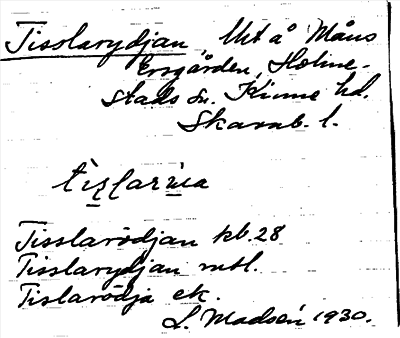 Tisslarydjan, Utt å Måns
Ersgården, Holme-
stads sn. Kinne hd.
Skarab. l.
tìslarùıa
Tisslarödjan kb. 28
Tisslarydjan mtl.
Tislarödja ek.
L. Madsén 1930.